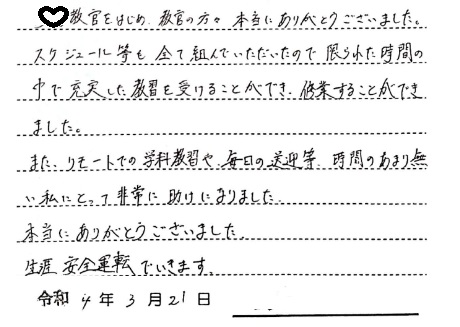 教官をはじめ、教官の方々 本当にありがとうございました。
スケジュール等も 全て組んでいただいたので 限られた時間の
中で 充実した教習を受けることができ、修業することができ
ました。
また、リモートでの学科教習や、毎日の送迎等、時間のあまり無
い私にとって非常に助けになりました。
本当にありがとうございました。
生涯 安全運転でいきます。
令和 4 年 3 月 21 日